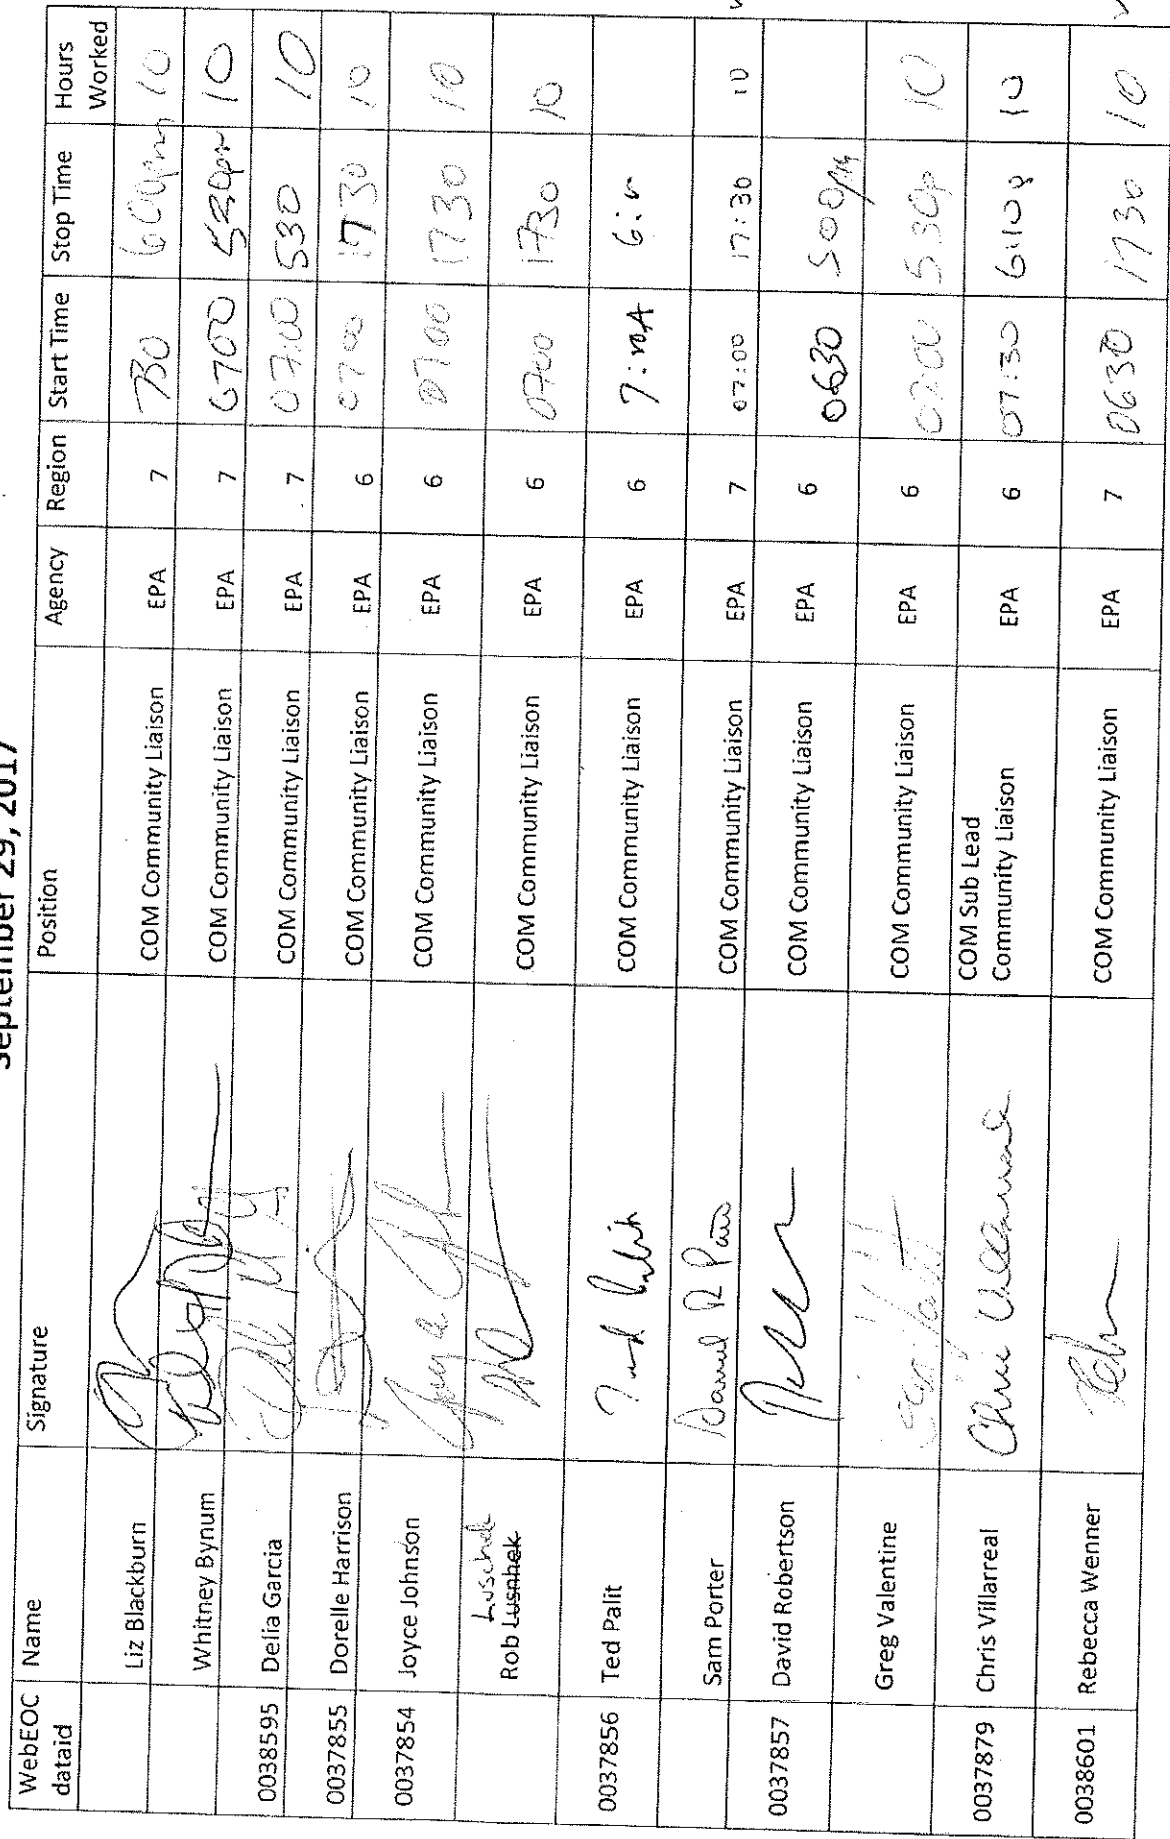 September 29, 2017
WebEOC dataid Name Signature Position Agency Region Start Time Stop Time Hours Worked
Liz Blackburn COM Community Liaison EPA 7 730 600pm 10
Whitney Bynum COM Community Liaison EPA 7 0700 520pm 10
0038595 Delia Garcia COM Community Liaison EPA 7 07:00 530 10
0037855 Dorelle Harrison COM Community Liaison EPA 6 0700 1730 10
0037854 Joyce Johnson COM Community Liaison EPA 6 0700 1730 10
Luschek
Rob Lusnhek COM Community Liaison EPA 6 0700 1730 10
0037856 Ted Palit COM Community Liaison EPA 6
Sam Porter COM Community Liaison EPA 7 07:00 17:30 10
0037857 David Robertson COM Community Liaison EPA 6 0630 500pm
Greg Valentine COM Community Liaison EPA 6 07:00 5:30p 10
0037879 Chris Villarreal COM Sub Lead
Community Liaison EPA 6 07:30 6:10p 10
0038601 Rebecca Wenner COM Community Liaison EPA 7 0630 1730 10